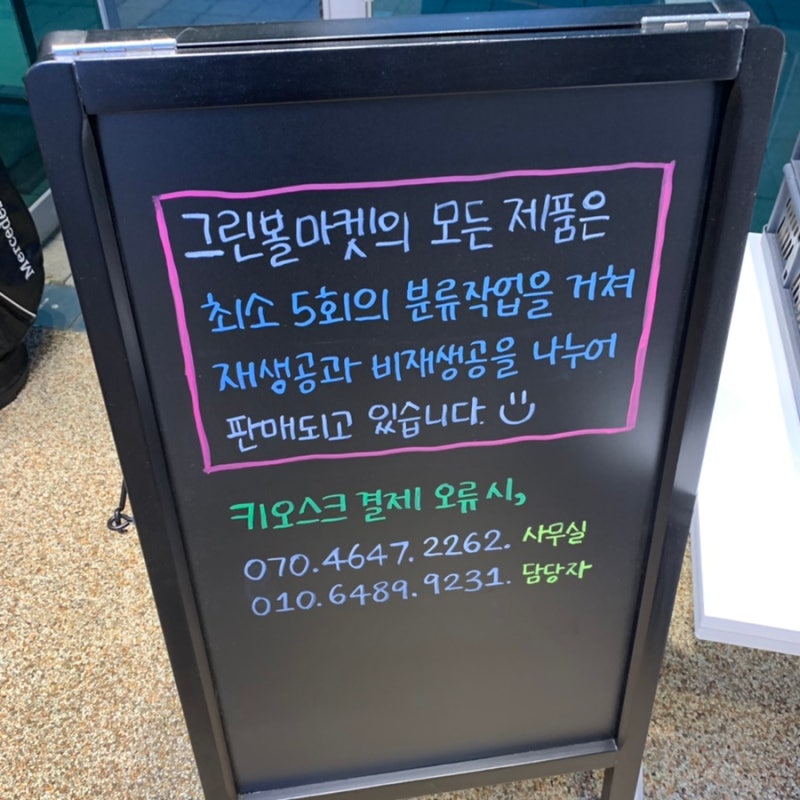 그린볼마켓의 모든 제품은
최소 5회의 분류작업을 거쳐
재생공과 비재생공을 나누어
판매되고 있습니다.
키오스크 결제 오류 시,
070.4647.2262. 사무실
010.6489.9231. 담당자